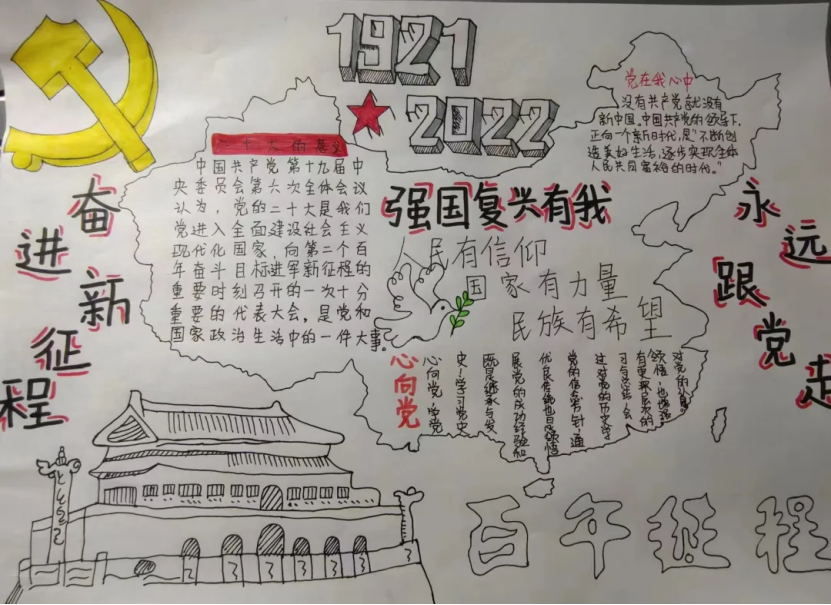 1921
2022
二十大的意义
中国共产党第十九届中
央委员会第六次全体会议
认为，党的二十大是我们
党进入全面建设社会主义
现代化国家，向第二个百
年奋斗目标进军新征程的
重要时刻召开的一次十分
重要的代表大会，是党和
国家政治生活中的一件大事。
党在我心中
没有共产党就没有
新中国。中国共产党的领导下，
正向一个新时代，是“不断创
造美好生活，逐步实现全体
人民共同富裕的时代。”
强国复兴有我
人民有信仰
国家有力量
民族有希望
奋进新征程
永远跟党走
心向党
心向党，学党
史！学习党史
既是继承与发
展党的成功经验和
优良传统也是领悟
党的信条方针，通
过对党的历史学
习与总结，会
有更深层次的
领悟，也增强
对党的
百年征程